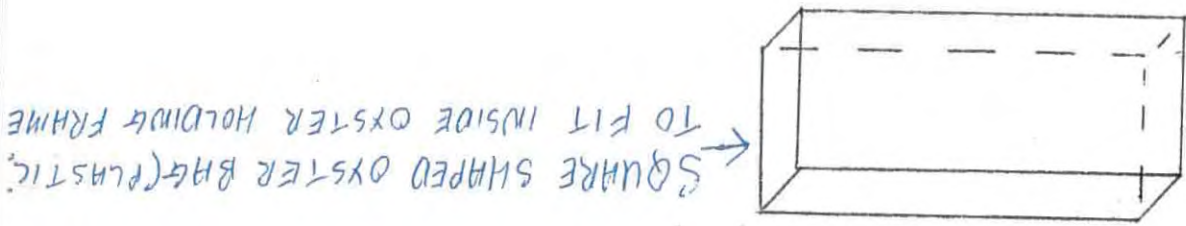 SQUARE SHAPED OYSTER BAG (PLASTIC.
TO FIT INSIDE OYSTER HOLDING FRAME